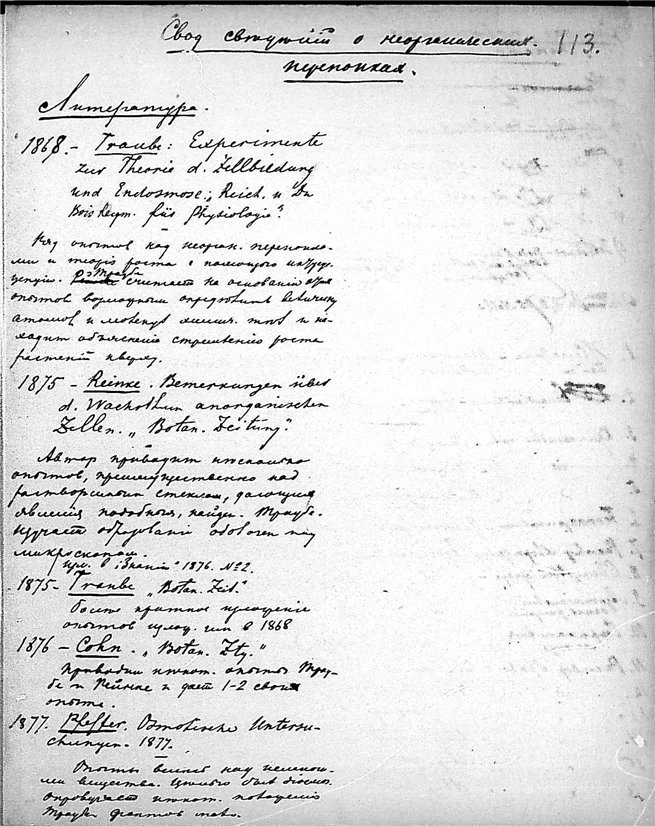 Свод сведений о неорганических 113.
перепонках.
Литература.
1868. – Traube: Experimente
zur Theorie d. Zellbildung
und Endosmose; Reich. u Du
Bois Reym. für Physiologie"
Ряд опытов над неорган. перепонка-
ми и теория роста с помощью интуссус-
цепции. Траубе считает на основании
опытов возможным определить величину
атомов и молекул химич. тел и на-
ходит объяснение стремлению роста
растений кверху.
1875 – Reinke. Bemerkungen über
d. Wachsthum anorganischen
Zellen. „Botan. Zeitung".
Автор приводит несколько
опытов, преимущественно над
растворимым стеклом, дающие
явления подобныя, найден. Траубе.
Изучает образование оболочек под
микроскопом.
"Знании" 1876. №2.
1875 – Traube „Botan. Zeit."
более краткое изложение
опытов излож. им в 1868
1876 – Cohn. „Botan. Ztg."
Приводит некот. опыты Трау-
бе и Рейнке и дает 1-2 своих
опыта.
1877. Pfeffer. Osmotische Untersu-
chungen. 1877.
Опыты
вещества.
опровергает некот.
Траубе фактов